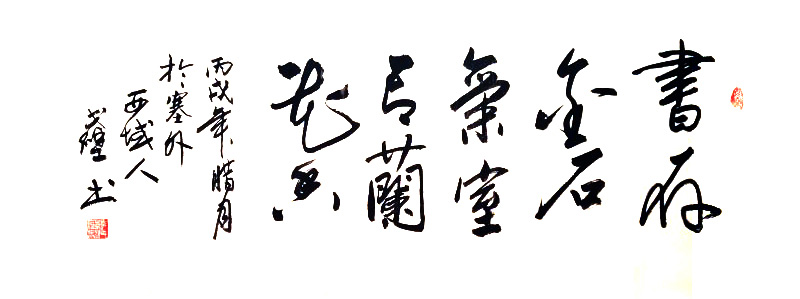 書存
金石
氣室
有蘭
花香
丙戌年腊月
於塞外
西域人
戈壁书